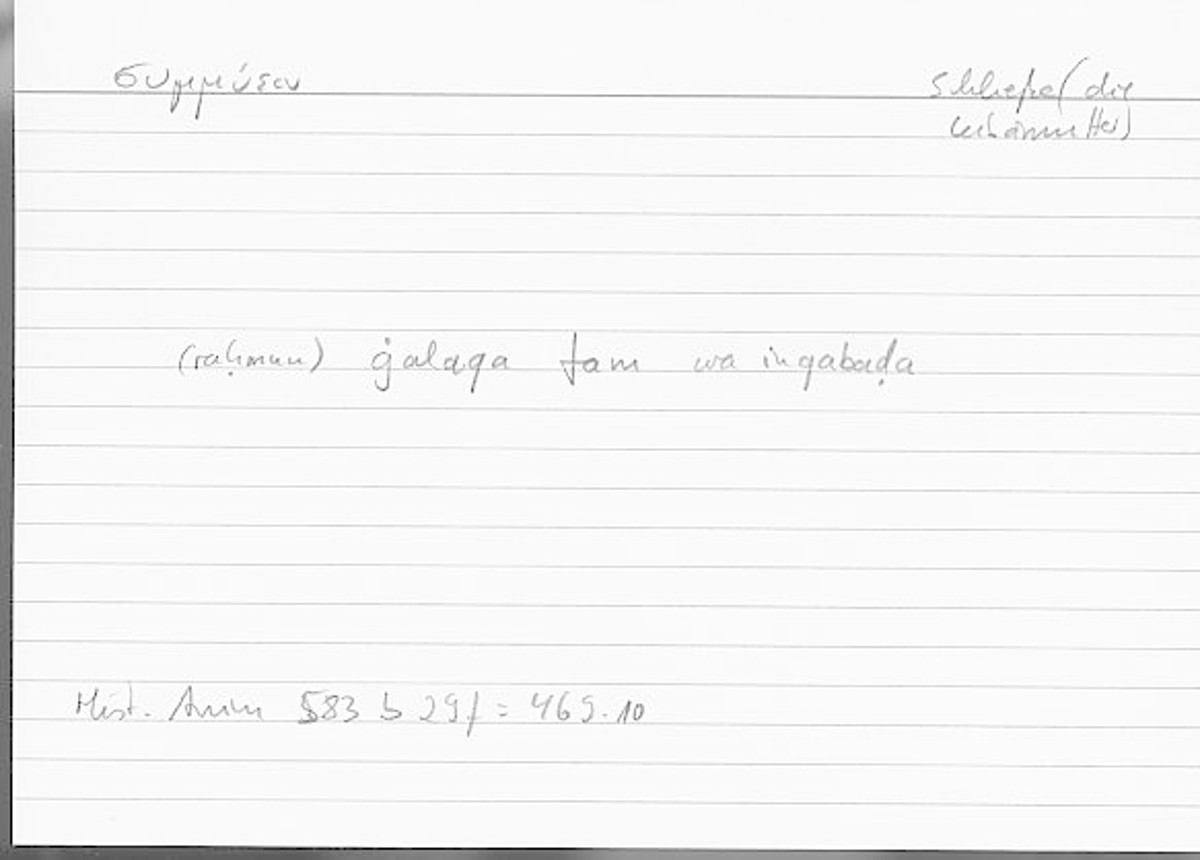 συμμύειν Schließen (die
Gebärmutter)
(raḥmun) ġalaqa fam wa inqabaḍa
Hist. Anim 583 b 29f = 469.10